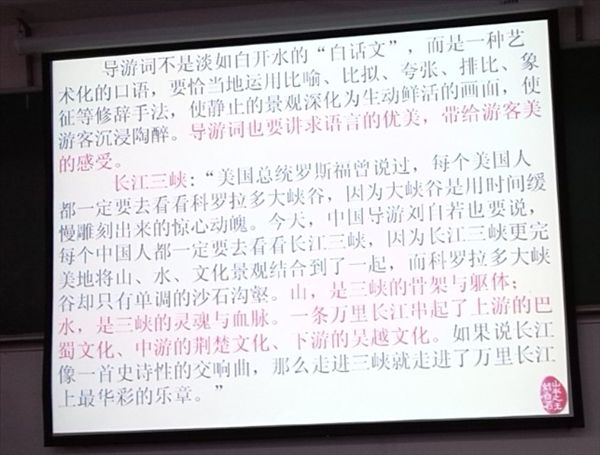 导游词不是淡如白开水的“白话文”，而是一种艺
术化的口语，要恰当地运用比喻、比拟、夸张、排比、象
征等修辞手法，使静止的景观深化为生动鲜活的画面，使
游客沉浸陶醉。导游词也要讲求语言的优美，带给游客美
的感受。
长江三峡：“美国总统罗斯福曾说过，每个美国人
都一定要去看看科罗拉多大峡谷，因为大峡谷是用时间缓
慢雕刻出来的惊心动魄。今天，中国导游刘自若也要说，
每个中国人都一定要去看看长江三峡，因为长江三峡更完
美地将山、水、文化景观结合到了一起，而科罗拉多大峡
谷却只有单调的沙石沟壑。山，是三峡的骨架与躯体；
水，是三峡的灵魂与血脉。一条万里长江串起了上游的巴
蜀文化、中游的荆楚文化、下游的吴越文化。如果说长江
像一首史诗性的交响曲，那么走进三峡就走进了万里长江
上最华彩的乐章。”